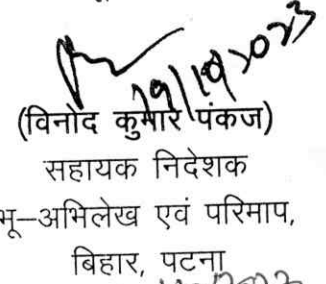 19/10/2023
(विनोद कुमार पंकज)
सहायक निदेशक
भू–अभिलेख एवं परिमाप,
बिहार, पटना